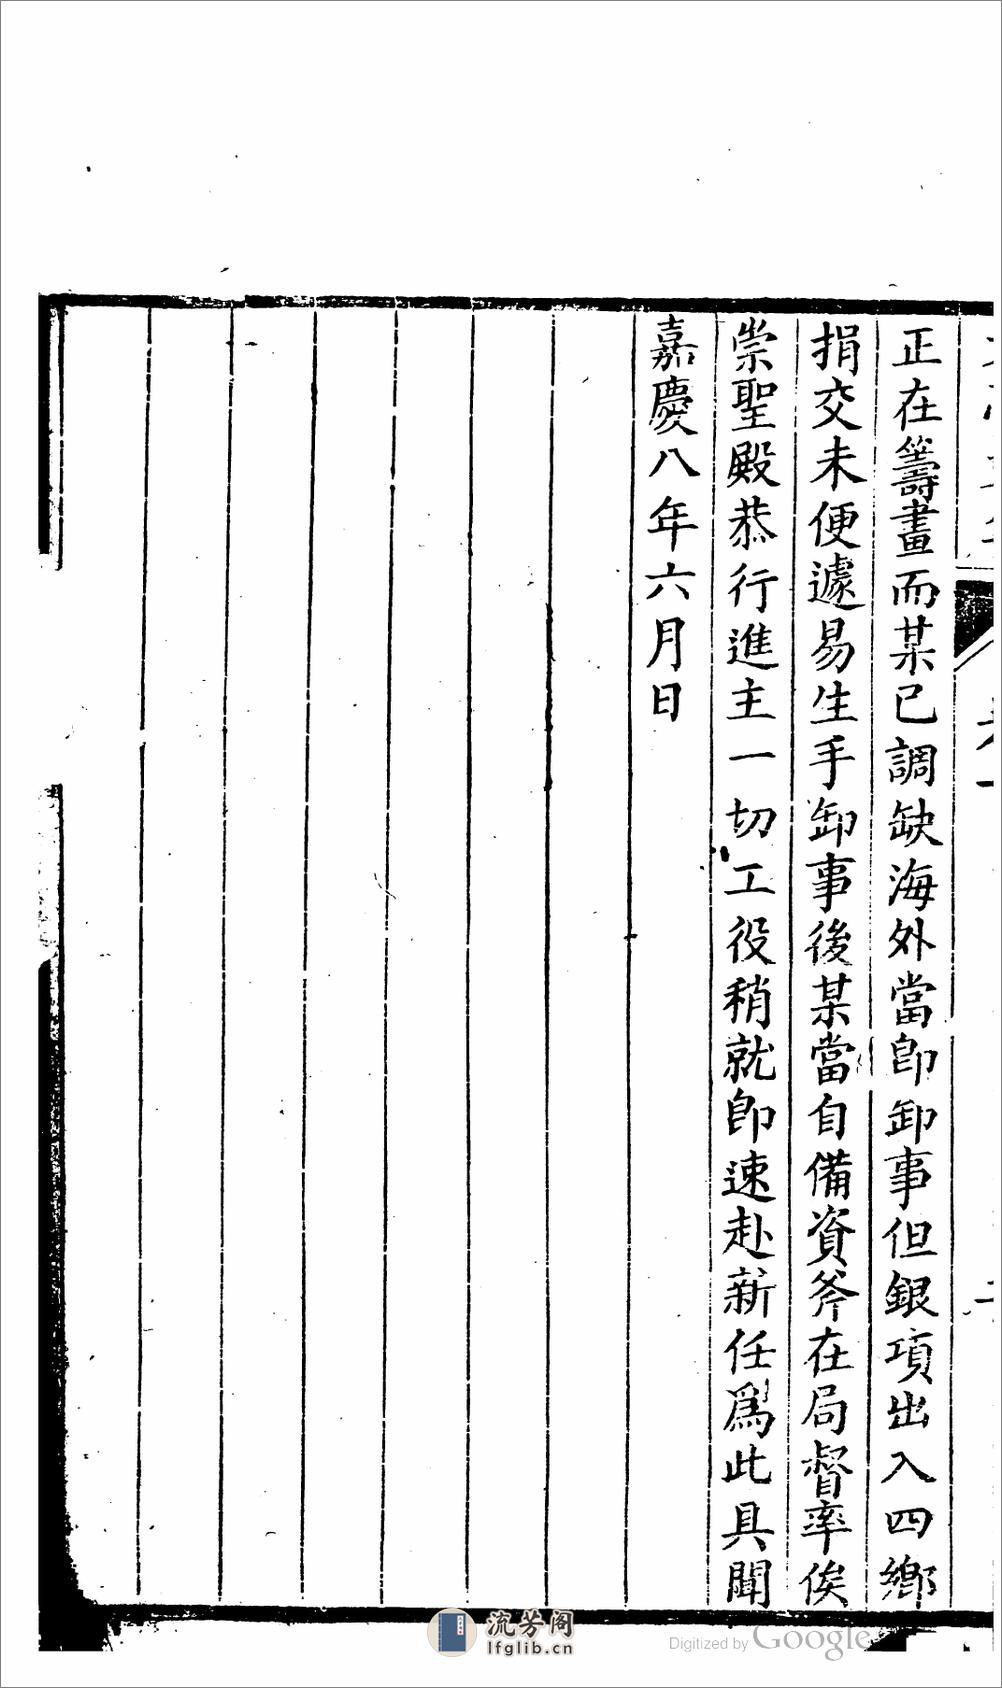 正在籌畫而某已調缺海外當卽卸事但銀項出入四鄉
捐交未便遽易生手卸事後某當自備資斧在局督率俟
崇聖殿恭行進主一切工役稍就卽速赴新任爲此具聞
嘉慶八年六月日
流芳阁
lfglib.cn
Digitized by Google